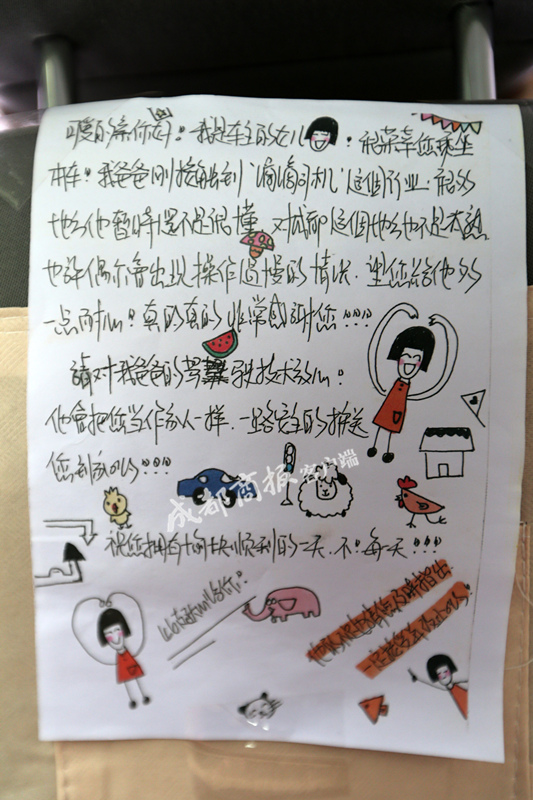 可爱的乘你好！我是车主的女儿！很荣幸您乘坐
本车！我爸爸刚接触到“滴滴司机”这個行业，很多
地方他暂時還不是很懂，对成都這個地方也不是太熟
也許偶尔會出現操作過慢的情况，望您给他多
一点耐心！真的真的非常感谢您!!!
請对我爸爸的驾驶技术放心！
他會把您当作家人一样，一路安全的接送
您到家的!!!
成都商报客户端
祝您拥有愉快顺利的一天，不！每天!!!